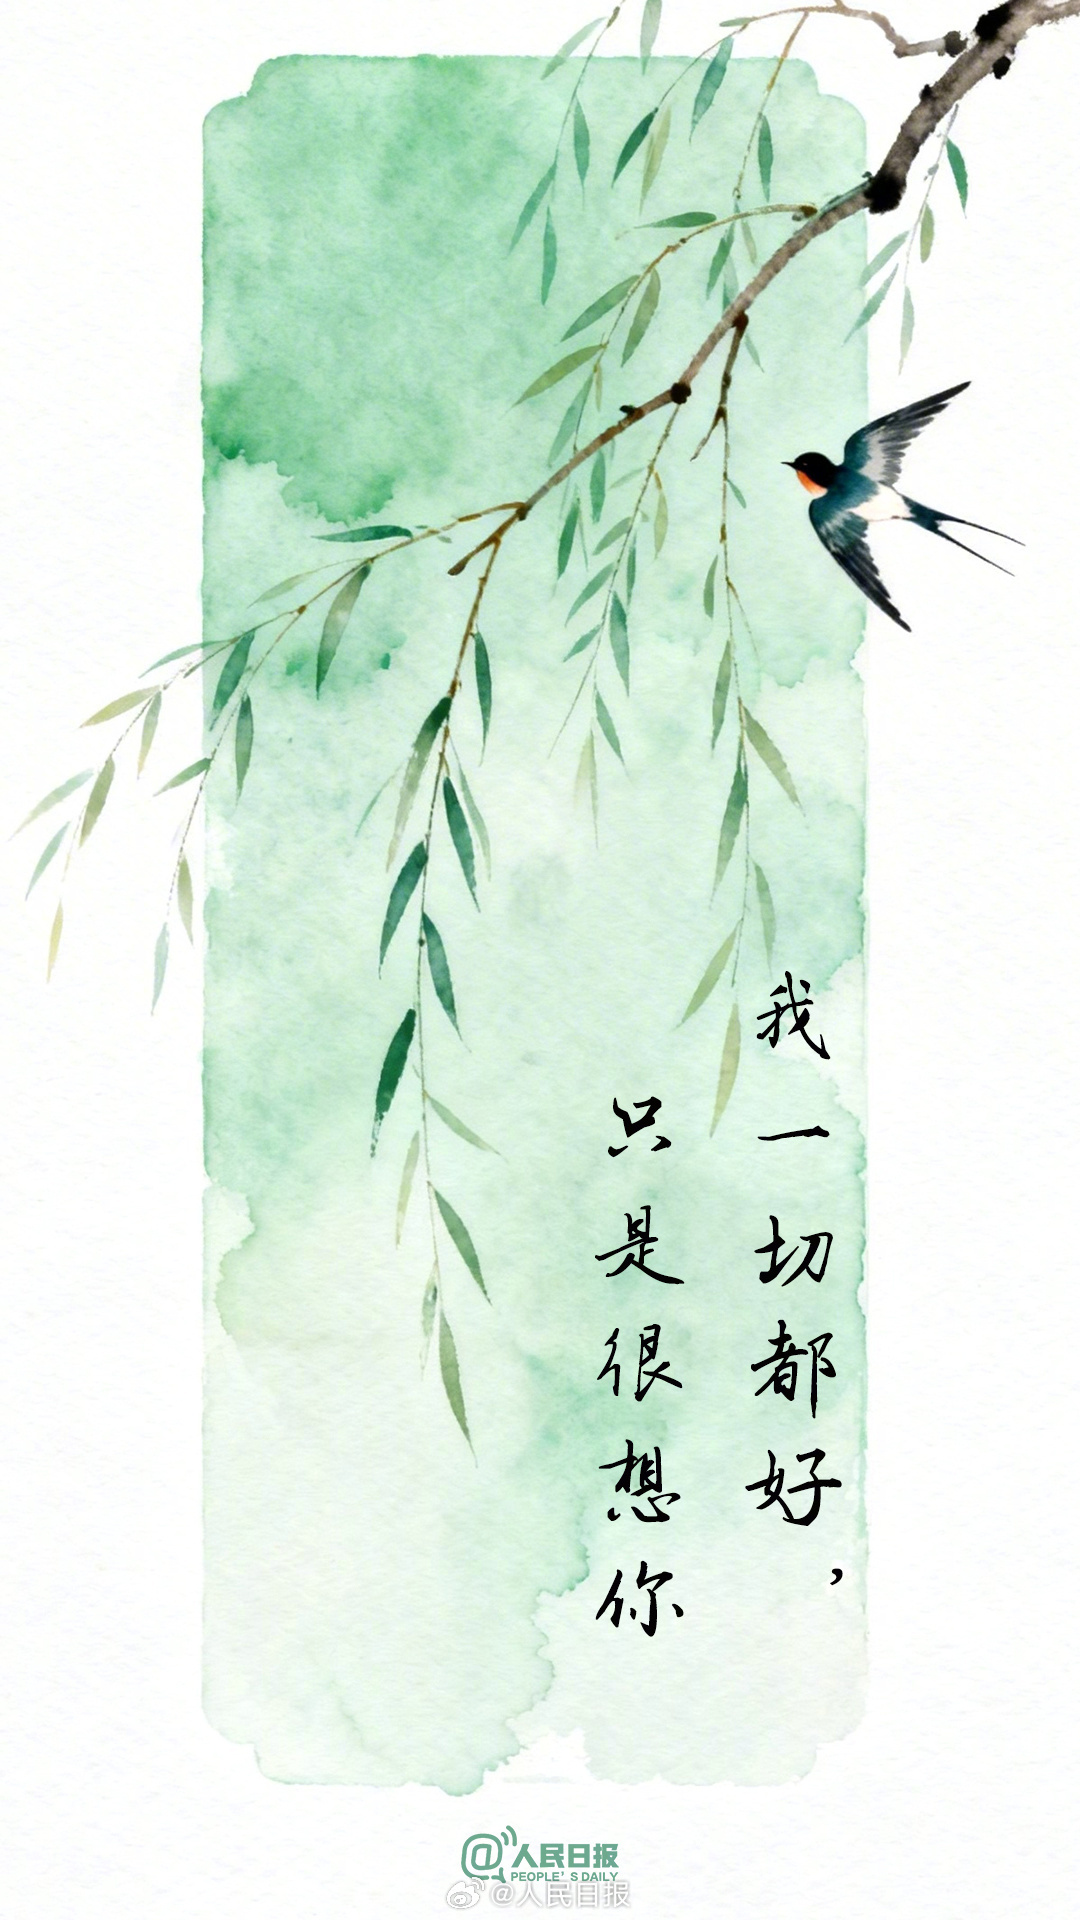 我一切都好，
只是很想你
@人民日报
PEOPLE'S DAILY
@人民日报